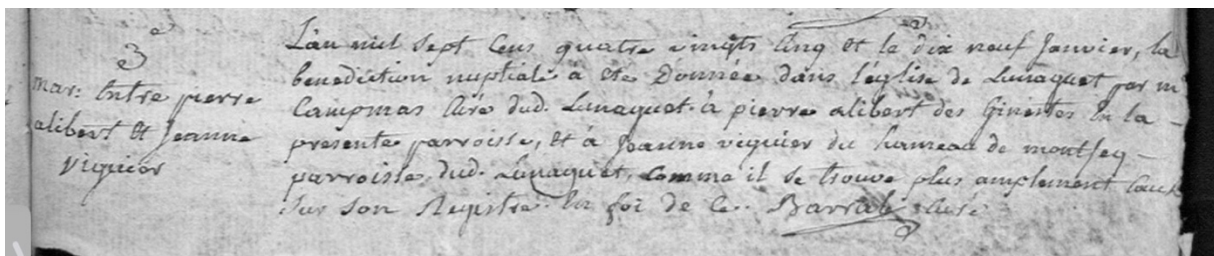 3e
mar: Entre pierre
alibert et Jeanne
viguier
L'an mil sept Cens quatre vingts Cinq et le dix neuf Janvier, la
benediction nuptiale a ete Donnée dans l'église de Lunaguet par mr
Campmas Curé dud. Lunaguet à pierre alibert des Ginestes en la
presente parroisse, et à Jeanne viguier du hameau de montseq
parroisse dud. Lunaguet, Comme il se trouve plus amplement
sur son Registre. En foi de Ce. Barrab Curé